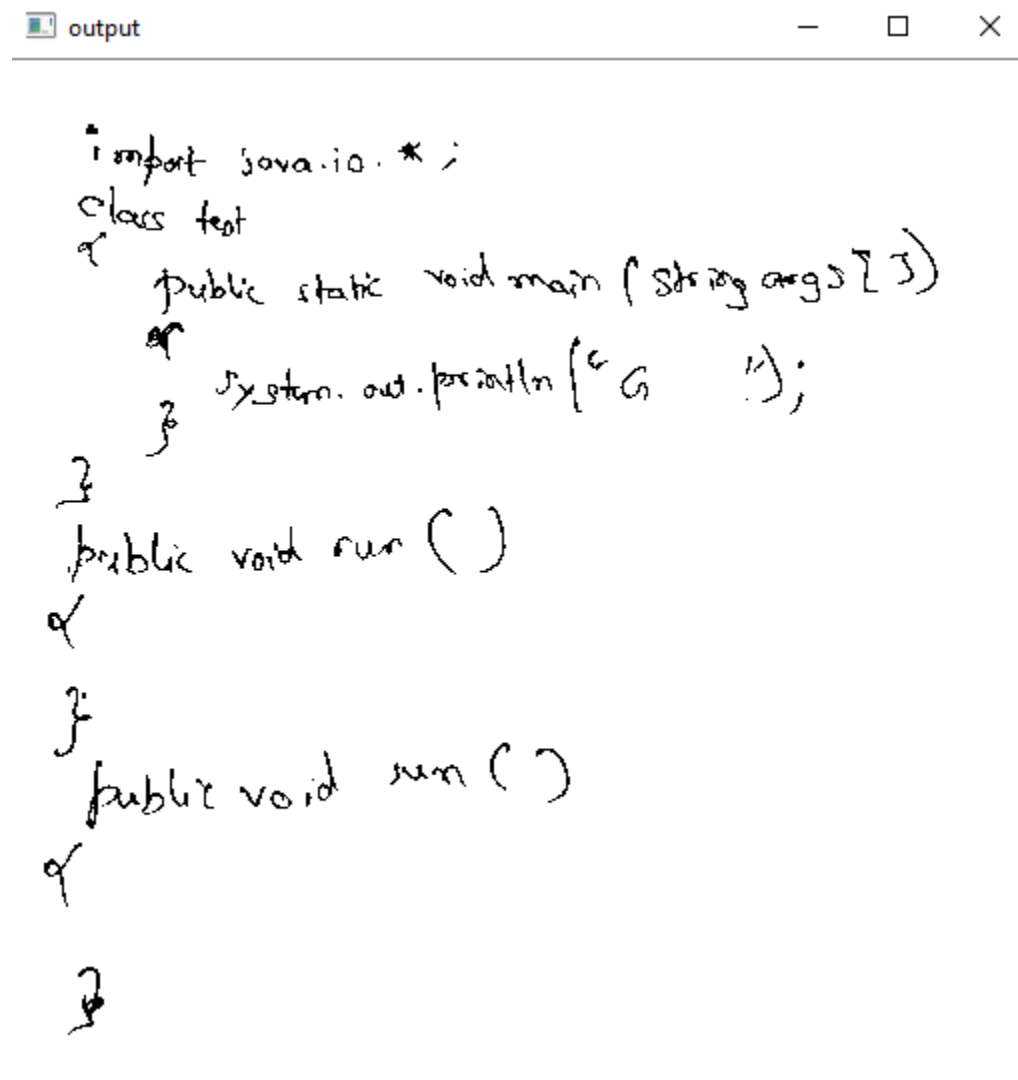 output
import java.io.*;
class test
{
public static void main (string args[])
{
system.out.println ("G ");
}
}
public void run ()
{
}
public void run ()
{
}